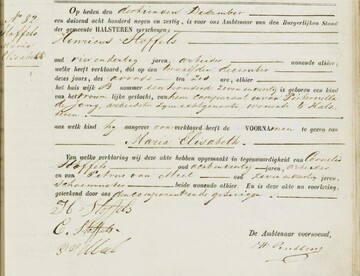 N° 82
Stoffels
Maria
Elisabeth
Op heden den dertienden December
een duizend acht honderd negen en zestig, is voor ons Ambtenaar van den Burgerlijken Stand
der gemeente HALSTEREN verschenen:
Henricus Stoffels
oud vier en dertig jaren, arbeider alhier
welke heeft verklaard, dat op den december
dezes jaars, des avonds ten ure, alhier, in
het huis wijk B nummer een honderd zeven en veertig is geboren een kind
van het vrouwelijke geslacht, van hem Comparant en van Pieternella
de Jong, arbeidster zijne echtgenoote wonende te Hals-
teren
aan welk kind hij aangever verklaard heeft de VOORNAMEN te geven van
Maria Elisabeth.
Van welke verklaring wij deze akte hebben opgemaakt in tegenwoordigheid van Cornelis
Stoffels oud jaren, arbeider
en van Petrus van Meel oud zeven en veertig jaren,
Schoenmaker beide wonende alhier. En is deze akte na voorlezing,
geteekend door ons comparanten en getuigen
H. Stoffels
C. Stoffels
P V Meel
De Ambtenaar voornoemd,